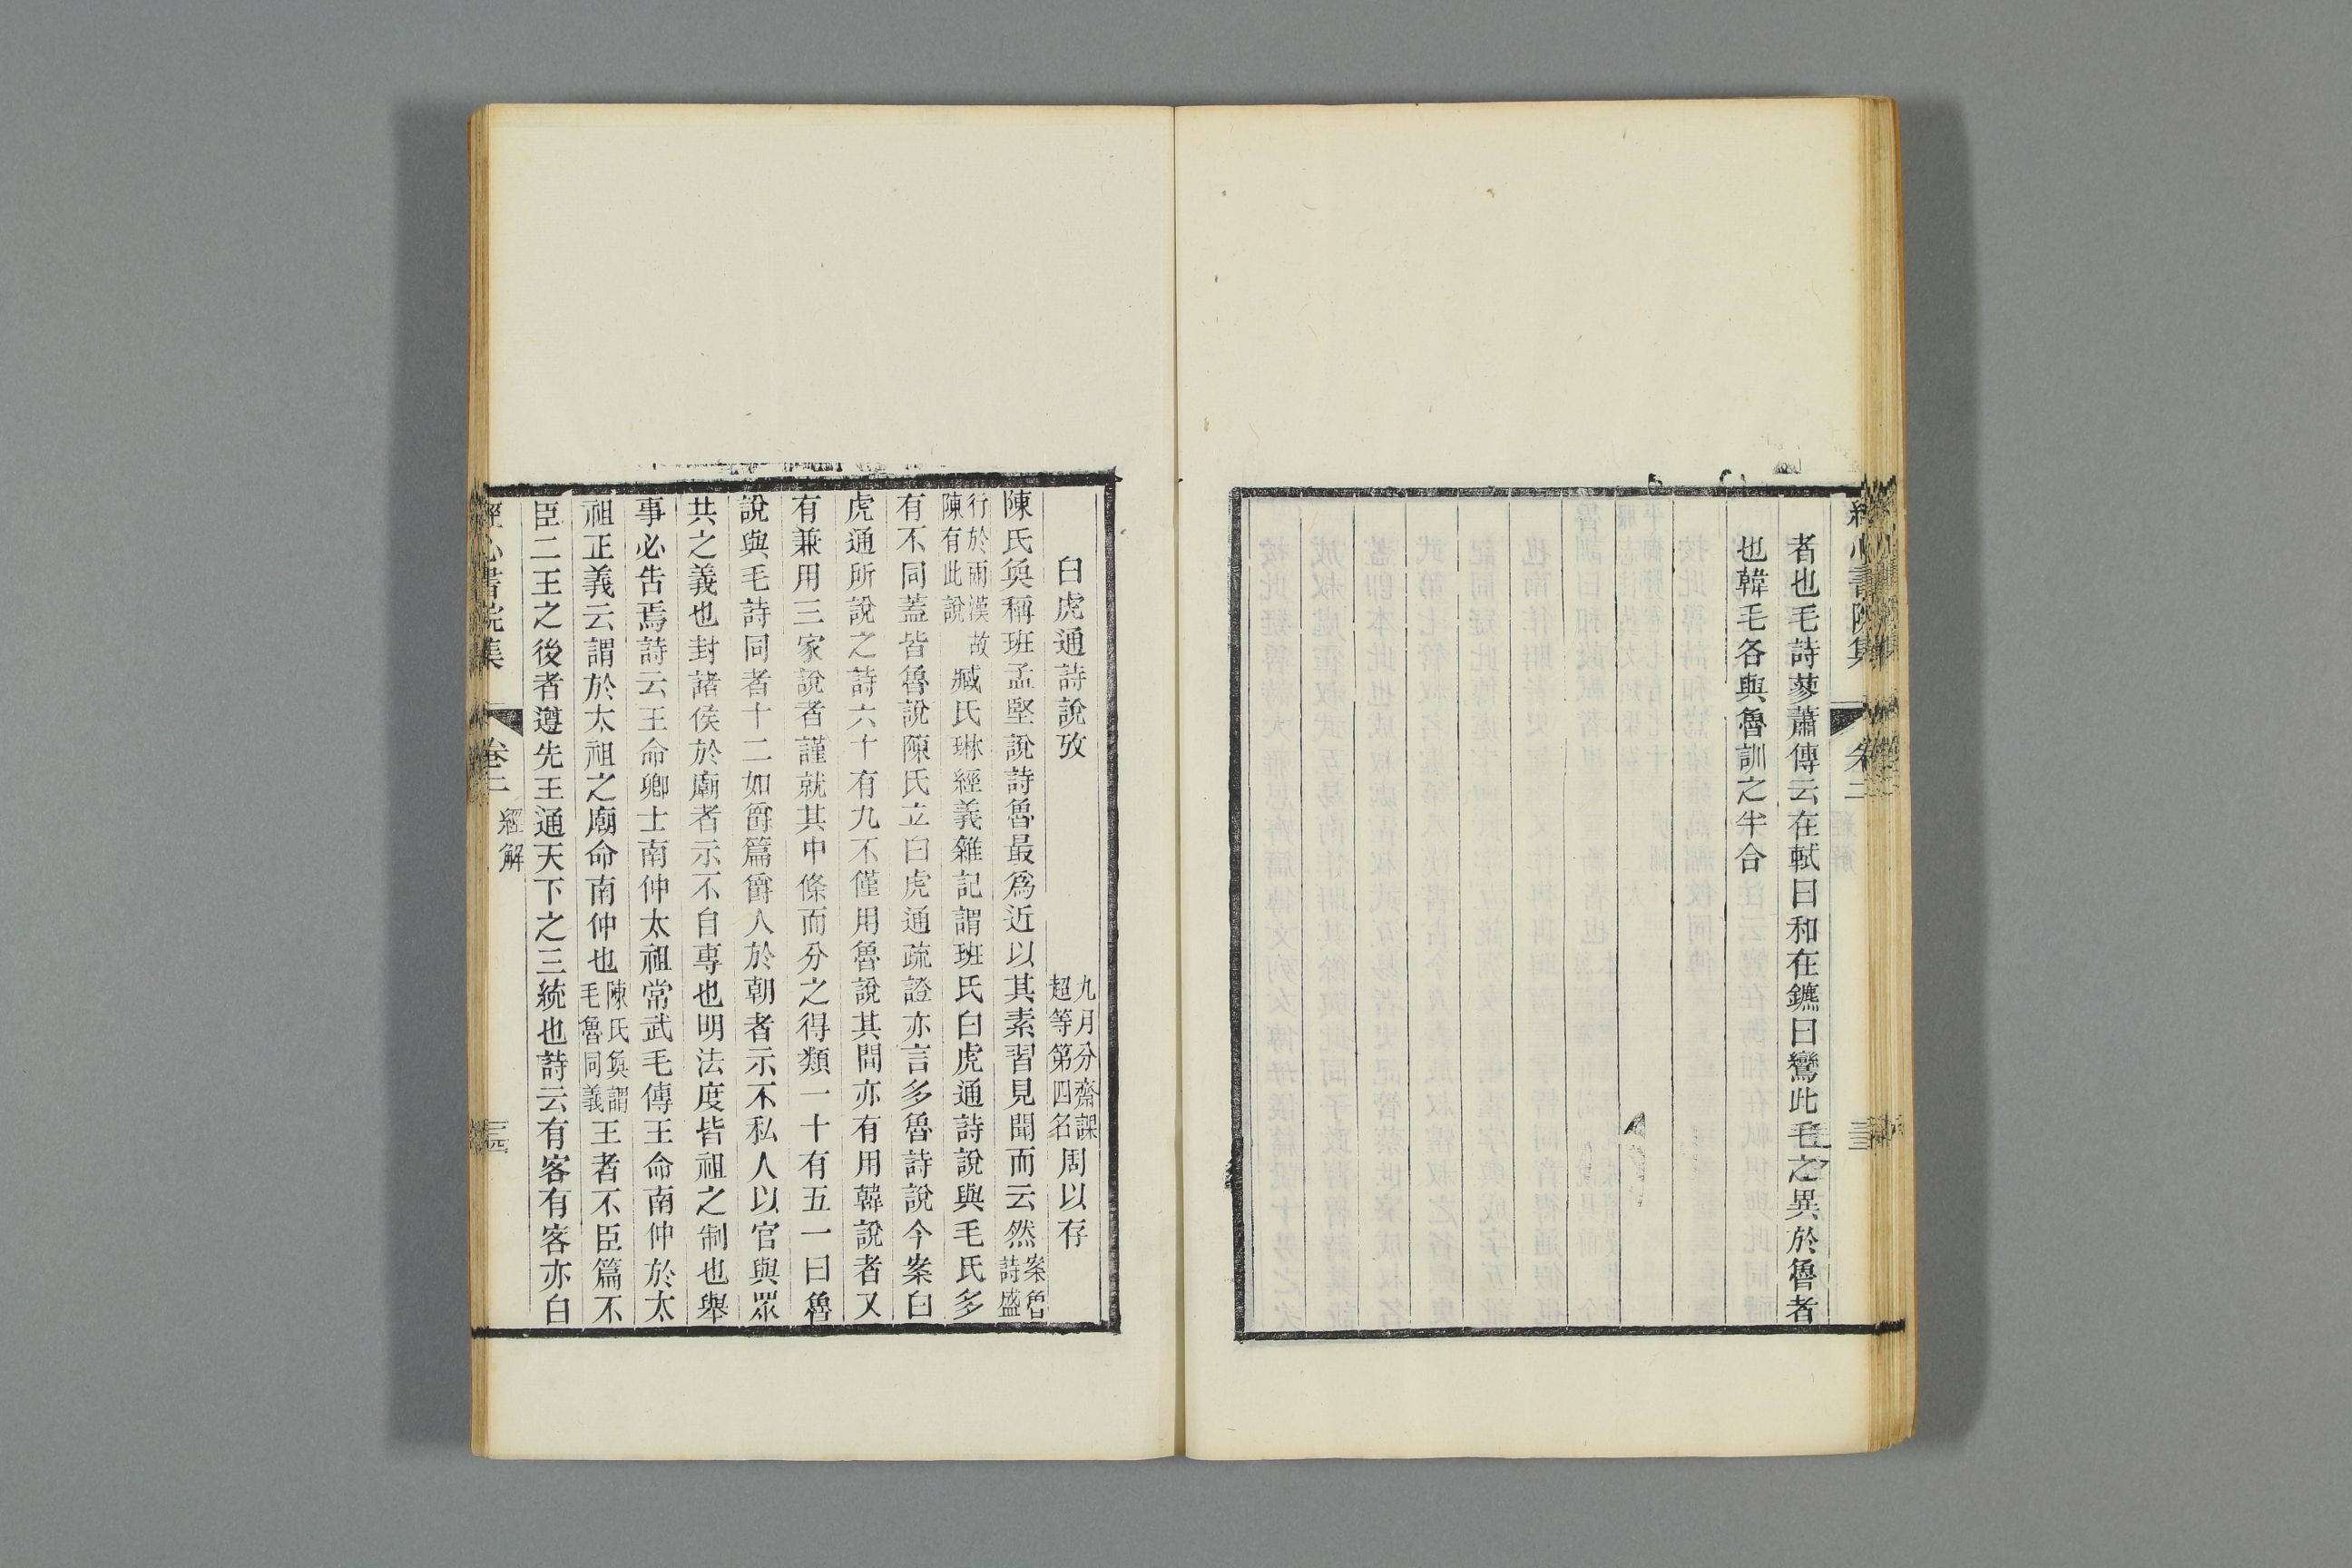 經心書院集 卷二
者也毛詩蓼蕭傳云在軾曰和在鑣曰鸞此毛之異於魯者
也韓毛各與魯訓之半合
白虎通詩說攷 九月分齋課超等第四名 周以存
陳氏奐稱班孟堅說詩魯最爲近以其素習見聞而云然案魯詩盛
行於兩漢故陳有此說臧氏琳經義雜記謂班氏白虎通詩說與毛氏多
有不同蓋皆魯說陳氏立白虎通疏證亦言多魯詩說今案白
虎通所說之詩六十有九不僅用魯說其間亦有用韓說者又
有兼用三家說者謹就其中條而分之得類一十有五一曰魯
說與毛詩同者十二如爵篇爵人於朝者示不私人以官與眾
共之義也封諸侯於廟者示不自專也明法度皆祖之制也舉
事必告焉詩云王命卿士南仲太祖常武毛傳王命南仲於太
祖正義云謂於太祖之廟命南仲也陳氏奐謂毛魯同義王者不臣篇不
臣二王之後者遵先王通天下之三統也詩云有客有客亦白
經心書院集 卷二 經解